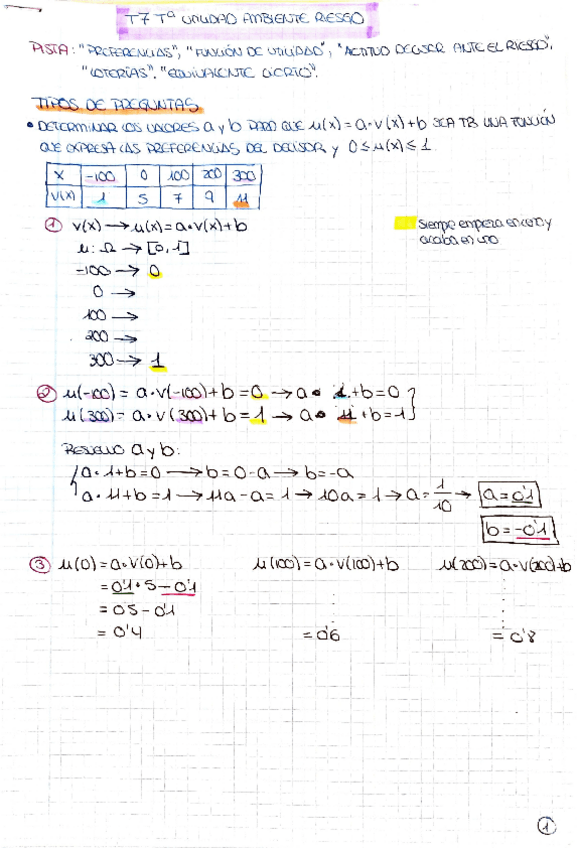 T7 Tª UTILIDAD AMBIENTE RIESGO
PISTA: "PREFERENCIAS", "FUNCIÓN DE UTILIDAD", "ACTITUD DECISOR ANTE EL RIESGO",
"LOTERÍAS", "EQUIVALENTE CIERTO".
TIPOS DE PREGUNTAS
• DETERMINAR LOS VALORES a y b PARA QUE u(x) = a·v(x)+b SEA TB UNA FUNCIÓN
QUE EXPRESA LAS PREFERENCIAS DEL DECISOR y 0 ≤ u(x) ≤ 1.
X -100 0 100 200 300
V(X) 1 5 7 9 11
① v(x) → u(x) = a·v(x)+b
Siempre empieza en cero y
acaba en uno
u: Ω → [0,1]
-100 → 0
0 →
100 →
200 →
300 → 1
② u(-100) = a·v(-100)+b = 0 → a· 1 +b=0
u(300) = a·v(300)+b = 1 → a· 11 +b=1
RESUELVO a y b:
a·1+b=0 → b=0-a → b=-a
a·11+b=1 → 11a-a=1 → 10a=1 → a= 1/10 → a=0'1
b=-0'1
③ u(0) = a·v(0)+b u(100) = a·v(100)+b u(200) = a·v(200)+b
= 0'1·5-0'1
= 0'5-0'1
= 0'4 = 0'6 = 0'8
1